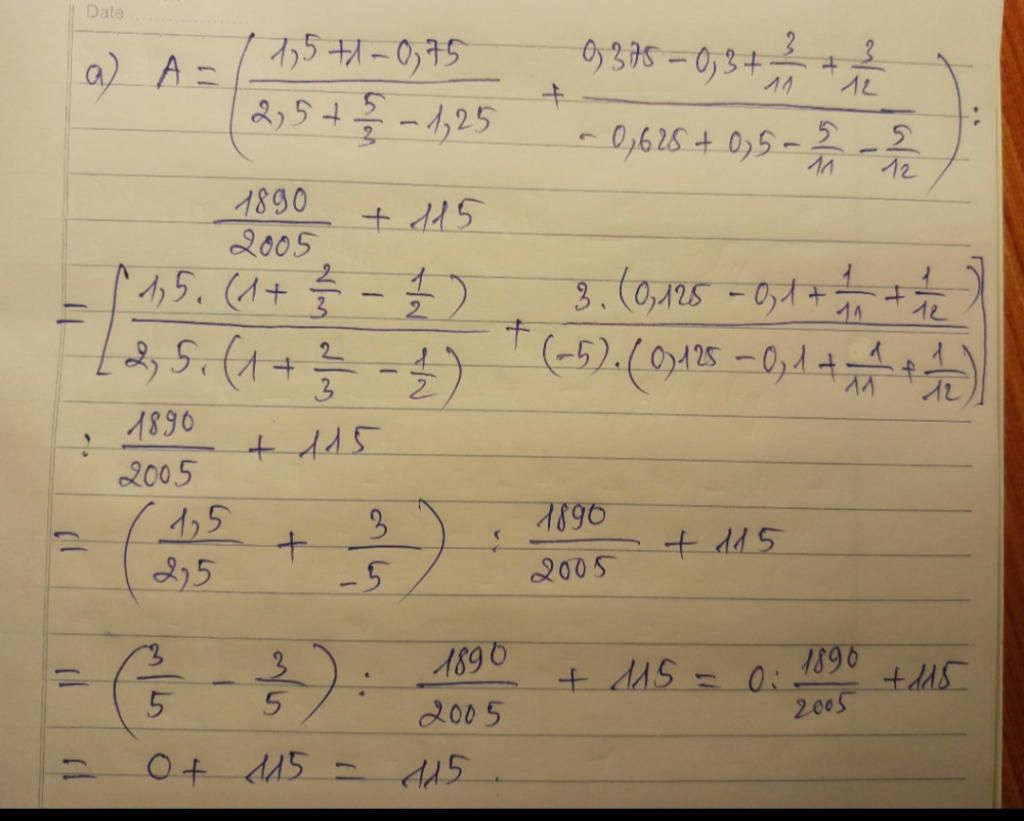 Date
a) A = ( (1,5 + 1 - 0,75)/(2,5 + 5/3 - 1,25) + (0,375 - 0,3 + 3/11 + 3/12)/(- 0,625 + 0,5 - 5/11 - 5/12) ) :
1890/2005 + 115
= [ (1,5. (1 + 2/3 - 1/2))/(2,5. (1 + 2/3 - 1/2)) + (3. (0,125 - 0,1 + 1/11 + 1/12))/((-5). (0,125 - 0,1 + 1/11 + 1/12)) ]
: 1890/2005 + 115
= ( 1,5/2,5 + 3/-5 ) : 1890/2005 + 115
= ( 3/5 - 3/5 ) : 1890/2005 + 115 = 0 : 1890/2005 + 115
= 0 + 115 = 115.